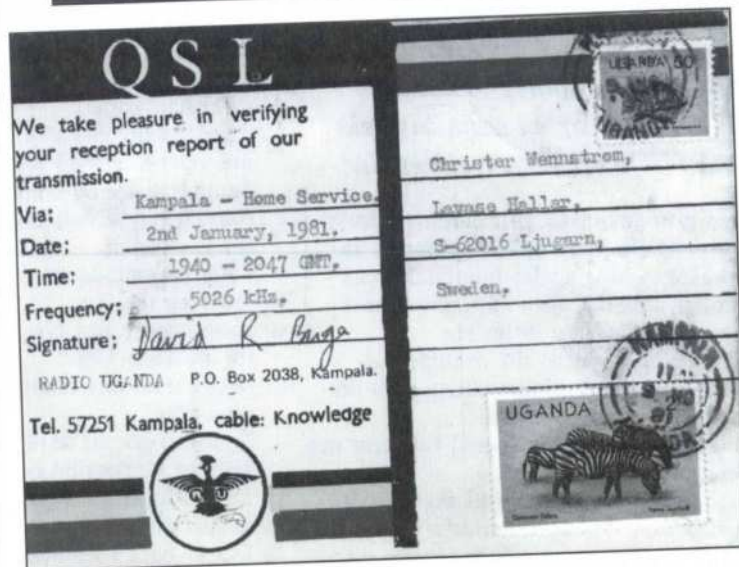 QSL
We take pleasure in verifying
your reception report of our
transmission.
Via: Kampala - Home Service.
Date: 2nd January, 1981.
Time: 1940 - 2047 GMT.
Frequency: 5026 kHz.
Signature: David R
RADIO UGANDA P.O. Box 2038, Kampala.
Tel. 57251 Kampala, cable: Knowledge
UGANDA
UGANDA
Christer Wennstrom,
Lavase Hallar,
S-62016 Ljugarn,
Sweden,
KAMPALA
UGANDA